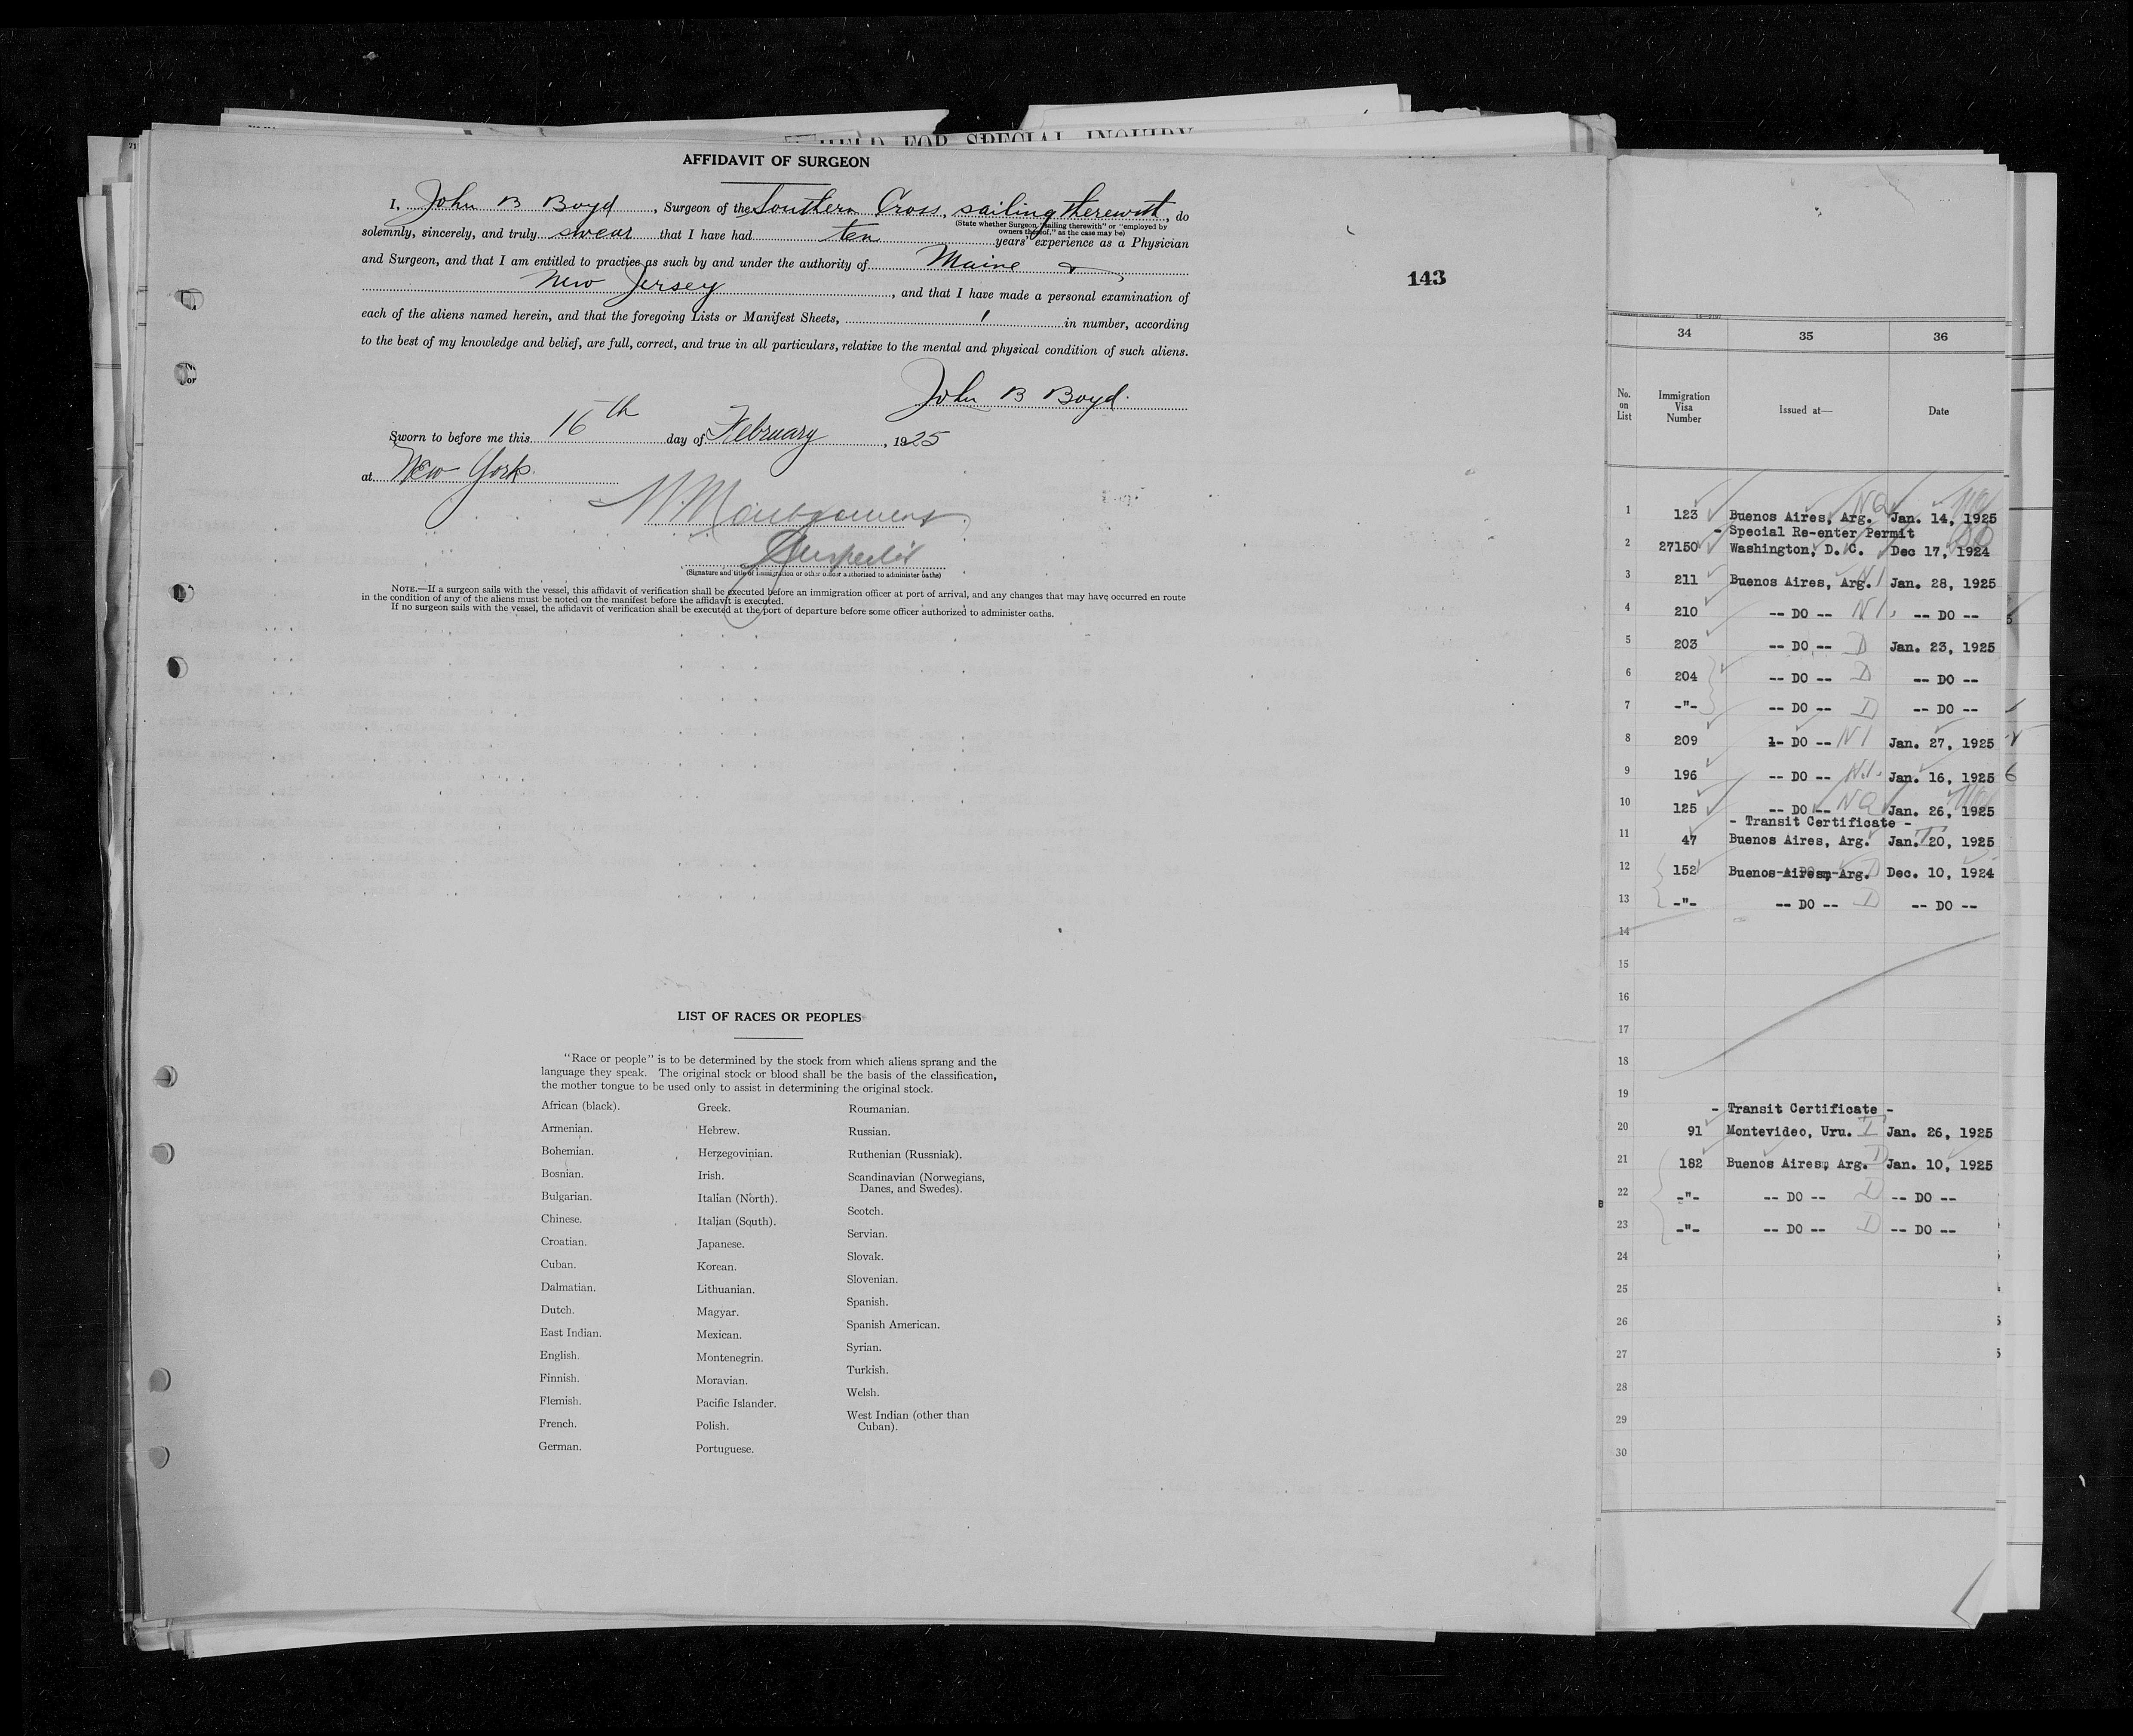 HELD FOR SPECIAL INQUIRY
AFFIDAVIT OF SURGEON
I, John B Boyd, Surgeon of the Southern Cross, sailing therewith, do
(State whether Surgeon "sailing therewith" or "employed by
owners thereof," as the case may be)
solemnly, sincerely, and truly swear that I have had ten years' experience as a Physician
and Surgeon, and that I am entitled to practice as such by and under the authority of Maine &
New Jersey, and that I have made a personal examination of
each of the aliens named herein, and that the foregoing Lists or Manifest Sheets, 1 in number, according
to the best of my knowledge and belief, are full, correct, and true in all particulars, relative to the mental and physical condition of such aliens.
John B Boyd.
Sworn to before me this 16th day of February, 1925
at New York.
Inspector
(Signature and title of immigration or other officer authorized to administer oaths)
NOTE.—If a surgeon sails with the vessel, this affidavit of verification shall be executed before an immigration officer at port of arrival, and any changes that may have occurred en route
in the condition of any of the aliens must be noted on the manifest before the affidavit is executed.
If no surgeon sails with the vessel, the affidavit of verification shall be executed at the port of departure before some officer authorized to administer oaths.
143
LIST OF RACES OR PEOPLES
"Race or people" is to be determined by the stock from which aliens sprang and the
language they speak. The original stock or blood shall be the basis of the classification,
the mother tongue to be used only to assist in determining the original stock.
African (black).
Armenian.
Bohemian.
Bosnian.
Bulgarian.
Chinese.
Croatian.
Cuban.
Dalmatian.
Dutch.
East Indian.
English.
Finnish.
Flemish.
French.
German.
Greek.
Hebrew.
Herzegovinian.
Irish.
Italian (North).
Italian (South).
Japanese.
Korean.
Lithuanian.
Magyar.
Mexican.
Montenegrin.
Moravian.
Pacific Islander.
Polish.
Portuguese.
Roumanian.
Russian.
Ruthenian (Russniak).
Scandinavian (Norwegians,
Danes, and Swedes).
Scotch.
Servian.
Slovak.
Slovenian.
Spanish.
Spanish American.
Syrian.
Turkish.
Welsh.
West Indian (other than
Cuban).
34 35 36
No. on List Immigration Visa Number Issued at— Date
1 123 Buenos Aires, Arg. NQ Jan. 14, 1925
- Special Re-enter Permit
2 27150 Washington, D. C. Dec 17, 1924
3 211 Buenos Aires, Arg. Jan. 28, 1925
4 210 -- DO -- N1. -- DO --
5 203 -- DO -- D Jan. 23, 1925
6 204 -- DO -- D -- DO --
7 -"- -- DO -- D -- DO --
8 209 1- DO -- N1 Jan. 27, 1925
9 196 -- DO -- N.1. Jan. 16, 1925 6
10 125 -- DO -- NQ Jan. 26, 1925
- Transit Certificate -
11 47 Buenos Aires, Arg. Jan. T 20, 1925
12 152 Buenos Aires, Arg. D Dec. 10, 1924
13 -"- -- DO -- D -- DO --
14
15
16
17
18
19
- Transit Certificate -
20 91 Montevideo, Uru. T Jan. 26, 1925
21 182 Buenos Aires, Arg. D Jan. 10, 1925
22 -"- -- DO -- D -- DO --
23 -"- -- DO -- D -- DO --
24
25
26
27
28
29
30